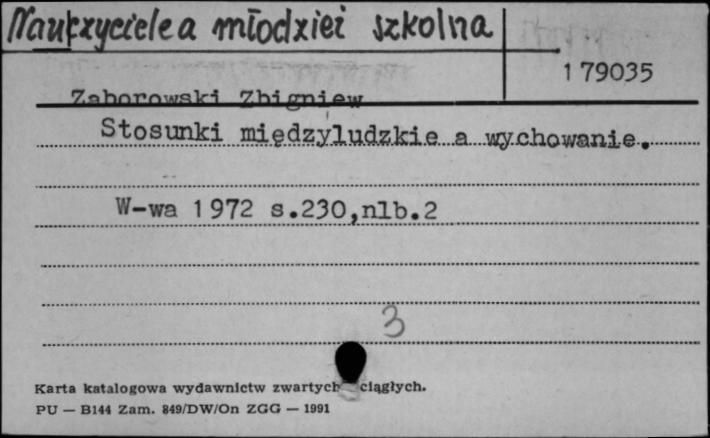 Nauczyciele a młodzież szkolna
179035
Zaborowski Zbigniew
Stosunki międzyludzkie a wychowanie.
W-wa 1972 s.230,nlb.2
3
Karta katalogowa wydawnictw zwartych ciągłych.
PU — B144 Zam. 849/DW/On ZGG — 1991